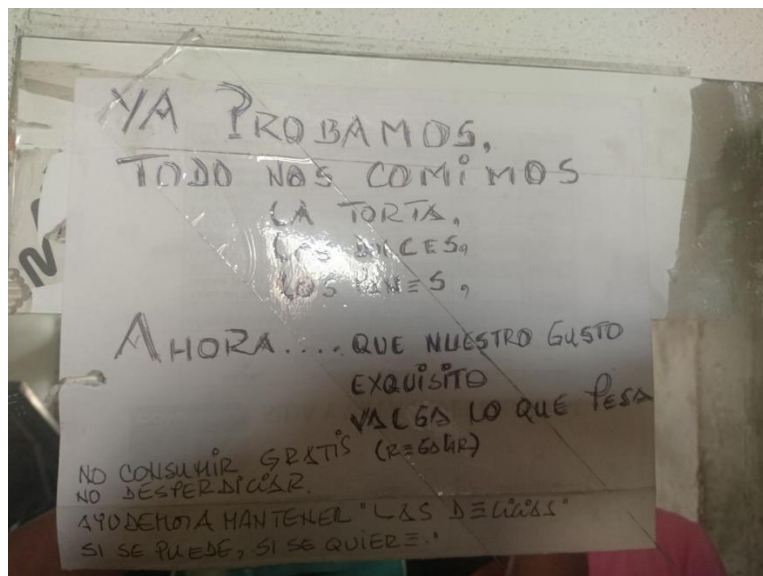 YA PROBAMOS,
TODO NOS COMIMOS
LA TORTA,
LOS DULCES,
LOS PANES,
AHORA.... QUE NUESTRO GUSTO
EXQUISITO
VALGA LO QUE PESA
(REGALAR)
NO CONSUMIR GRATIS
NO DESPERDICIAR.
AYUDEMOS A MANTENER "LAS DELICIAS"
SI SE PUEDE, SI SE QUIERE.